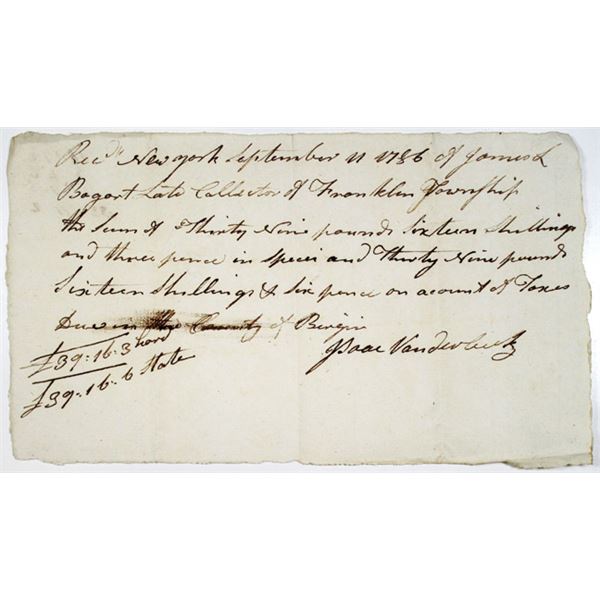 Recd. New york September 11 1786 of James L
Bogart Late Collector of Franklin Township
the Sum of Thirty Nine pounds Sixteen Shillings
and three pence in Specei and Thirty Nine pounds
Sixteen Shillings & Six pence on acount of Taxes
Due in the County of Birgin
£39:16:3 hard
£39:16:6 State
Isaac Vanderbeek